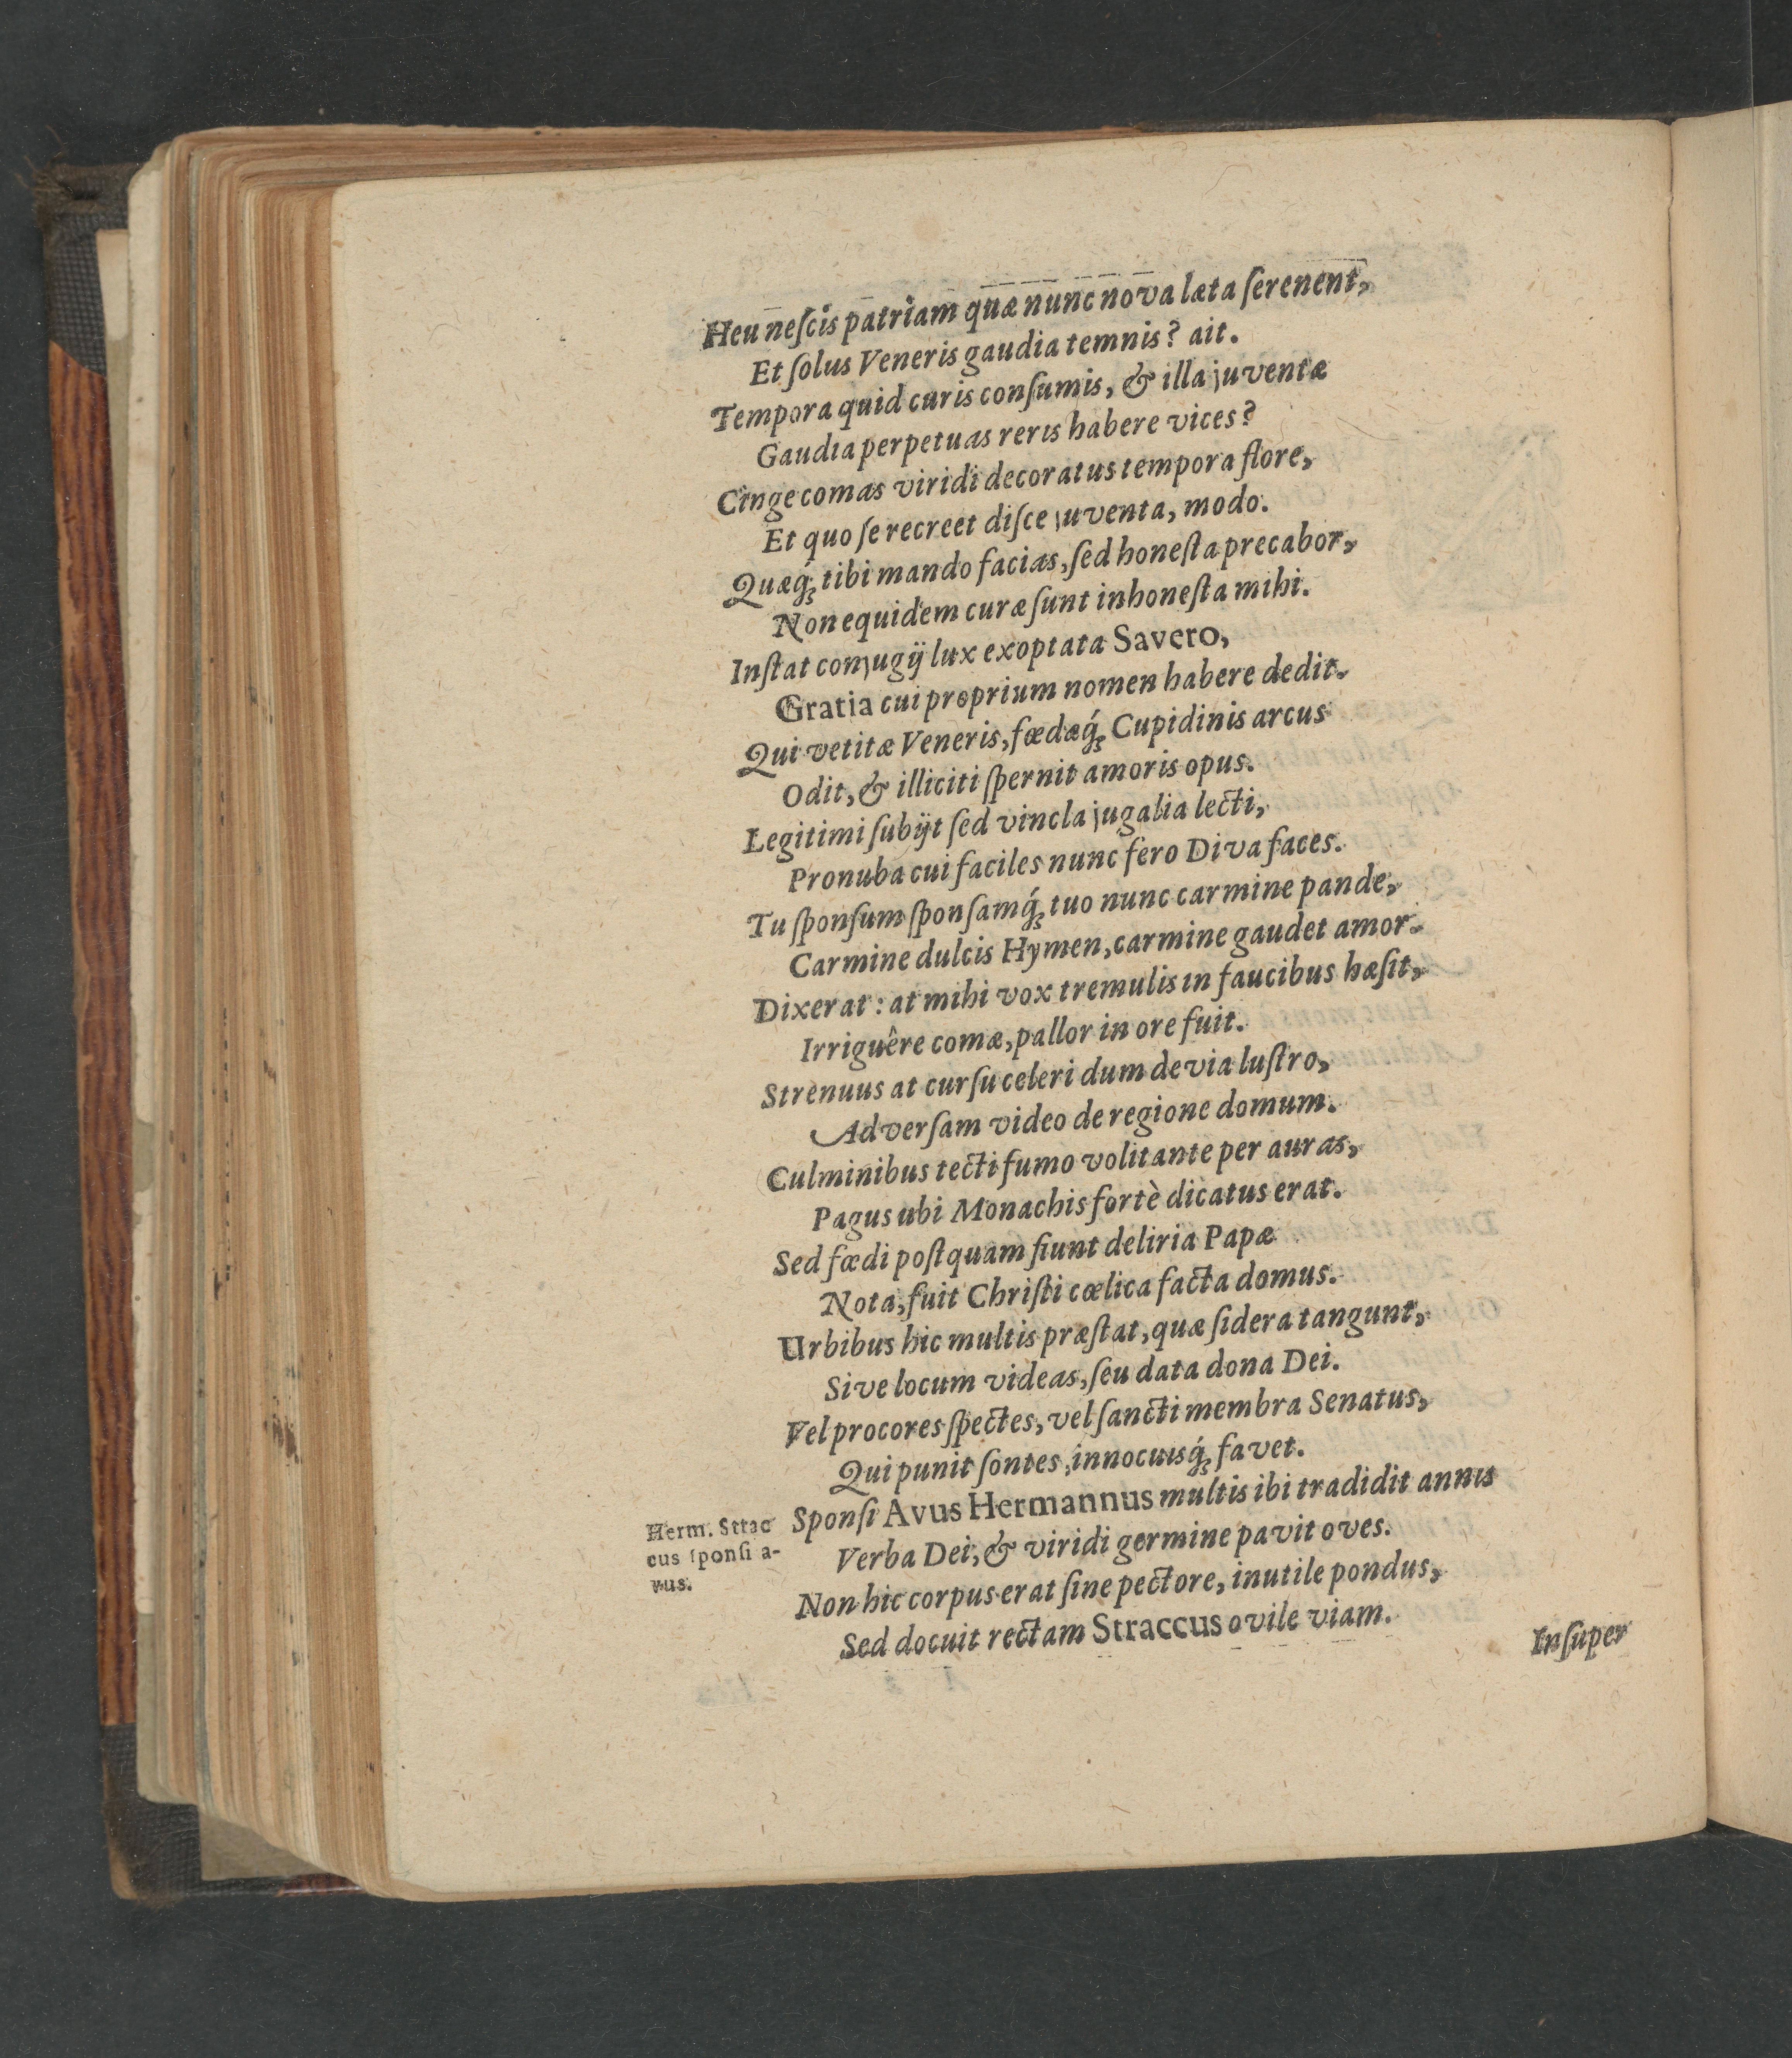 Heu neſcis patriam quæ nunc nova læta ſerenent,
Et ſolus Veneris gaudia temnis? ait.
Tempora quid curis conſumis, & illa juventæ
Gaudia perpetuas reris habere vices?
Cinge comas viridi decoratus tempora flore,
Et quo ſe recreet diſce juventa, modo.
Quæq́; tibi mando facias, ſed honeſta precabor,
Non equidem curæ ſunt inhoneſta mihi.
Inſtat conjugij lux exoptata Savero,
Gratia cui proprium nomen habere dedit.
Qui vetitæ Veneris, fœdæq́; Cupidinis arcus
Odit, & illiciti ſpernit amoris opus.
Legitimi ſubijt ſed vincla jugalia lecti,
Pronuba cui faciles nunc fero Diva faces.
Tu ſponſum ſponſamq́; tuo nunc carmine pande,
Carmine dulcis Hymen, carmine gaudet amor.
Dixerat: at mihi vox tremulis in faucibus hæſit,
Irriguêre comæ, pallor in ore fuit.
Strenuus at curſu celeri dum devia luſtro,
Adverſam video de regione domum.
Culminibus tecti fumo volitante per auras,
Pagus ubi Monachis fortè dicatus erat.
Sed fœdi poſtquam fiunt deliria Papæ
Nota, fuit Chriſti cœlica facta domus.
Urbibus hic multis præſtat, quæ ſidera tangunt,
Sive locum videas, ſeu data dona Dei.
Vel procores ſpectes, vel ſancti membra Senatus,
Qui punit ſontes, innocuisq́; favet.
Sponſi Avus Hermannus multis ibi tradidit annis
Herm. Strac
cus ſponſi a-
vus.
Verba Dei, & viridi germine pavit oves.
Non hic corpus erat ſine pectore, inutile pondus,
Sed docuit rectam Straccus ovile viam.
Inſuper